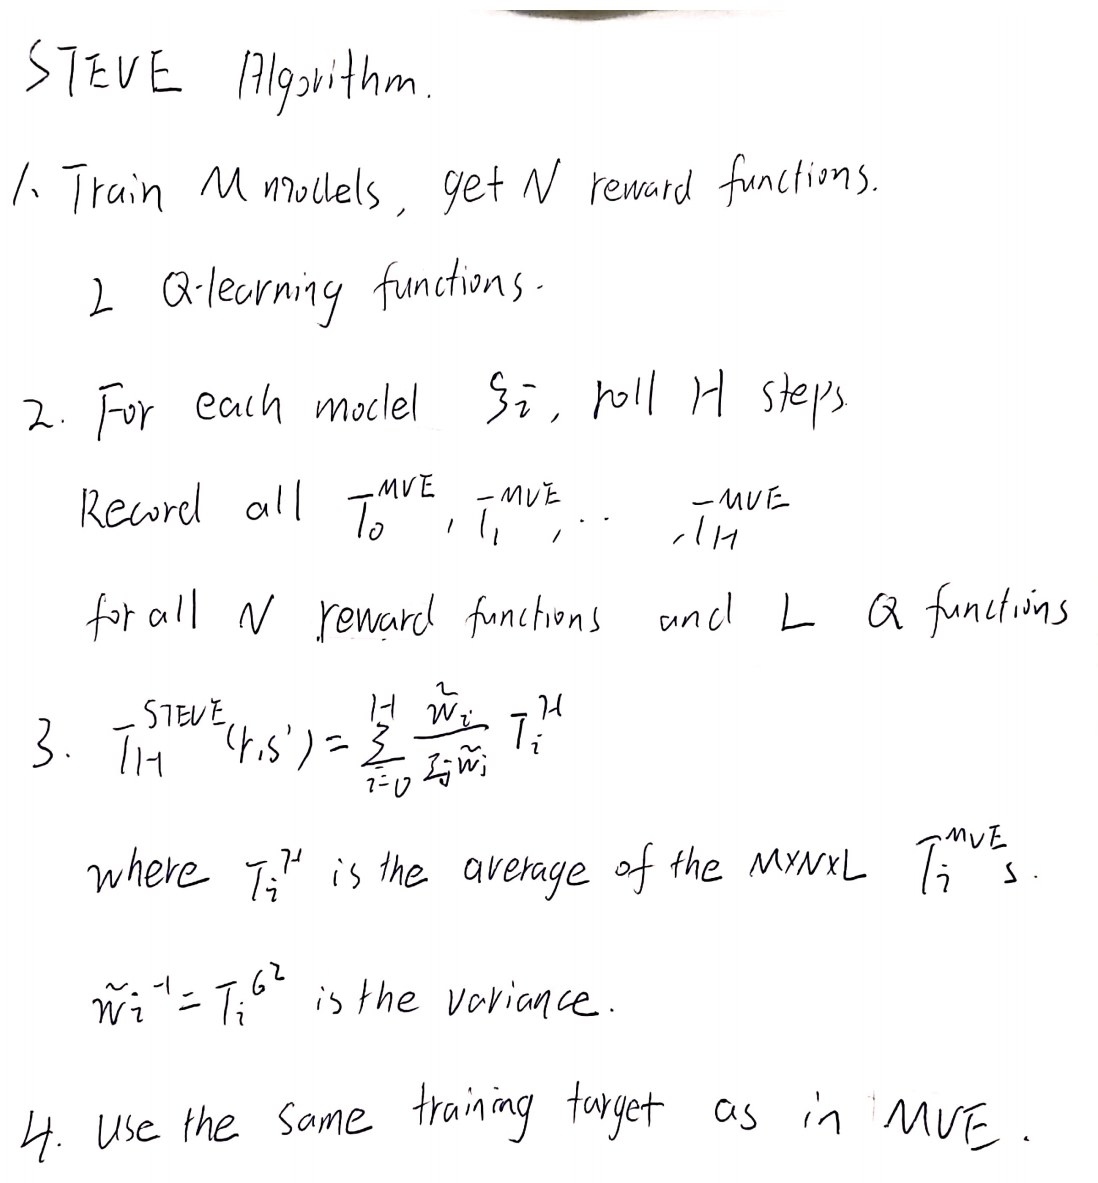 STEVE Algorithm.
1. Train M models, get N reward functions.
L Q-learning functions.
2. For each model ξ_i, roll H steps.
Record all T_0^{MVE}, T_1^{MVE}, .. , T_H^{MVE}
for all N reward functions and L Q functions
3. T_H^{STEVE}(r,s') = Σ_{i=0}^{H} \frac{w̃_i}{Σ_j w̃_j} T_i^μ
where T_i^μ is the average of the M×N×L T_i^{MVE}s.
w̃_i^{-1} = T_i^{σ^2} is the variance.
4. Use the same training target as in MVE.